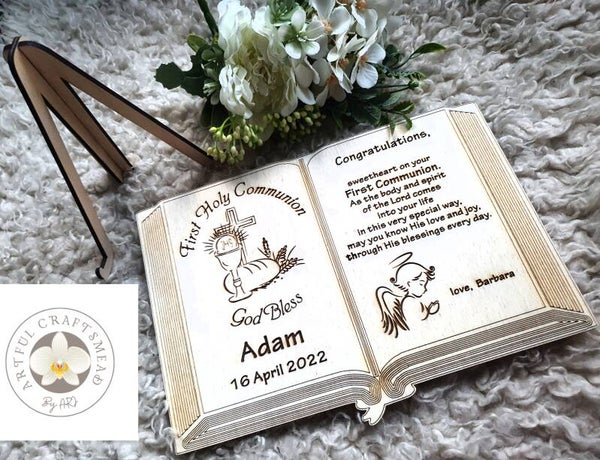 First Holy Communion
IHS
God Bless
Adam
16 April 2022
Congratulations,
sweetheart on your
First Communion.
As the body and spirit
of the Lord comes
into your life
in this very special way,
may you know His love and joy,
through His blessings every day.
love, Barbara
ARTFUL CRAFTSMEAD
By ARJ